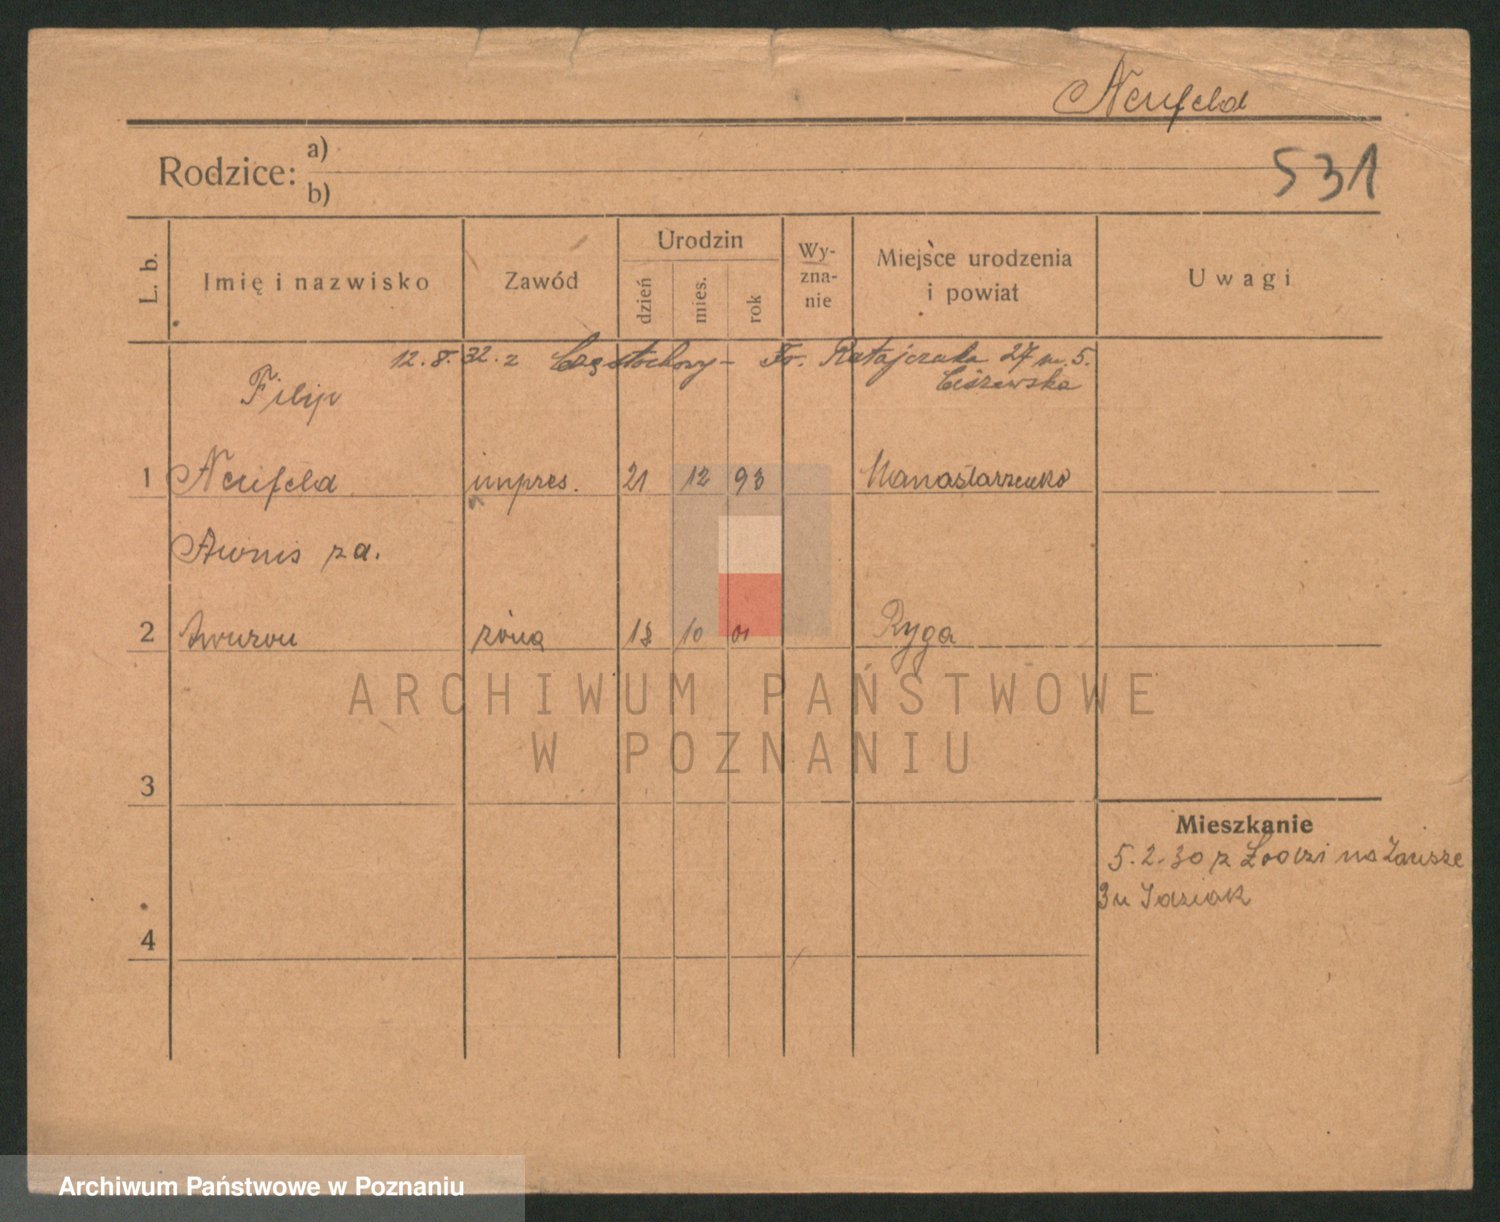 Neufeld
Rodzice: a)
b)
531
L. b.
Imię i nazwisko
Zawód
Urodzin
dzień
mies.
rok
Wy-
zna-
nie
Miejsce urodzenia
i powiat
Uwagi
12.8.32. z Częstochowy - Fr. Ratajczaka 27 m. 5.
Ciszewska
Filip
1 Neufeld impres. 21 12 93
za.
2 żona 18 10 01 Ryga
3
4
Mieszkanie
5.2.30 z Łodzi na
3 u
ARCHIWUM PAŃSTWOWE
W POZNANIU
Archiwum Państwowe w Poznaniu